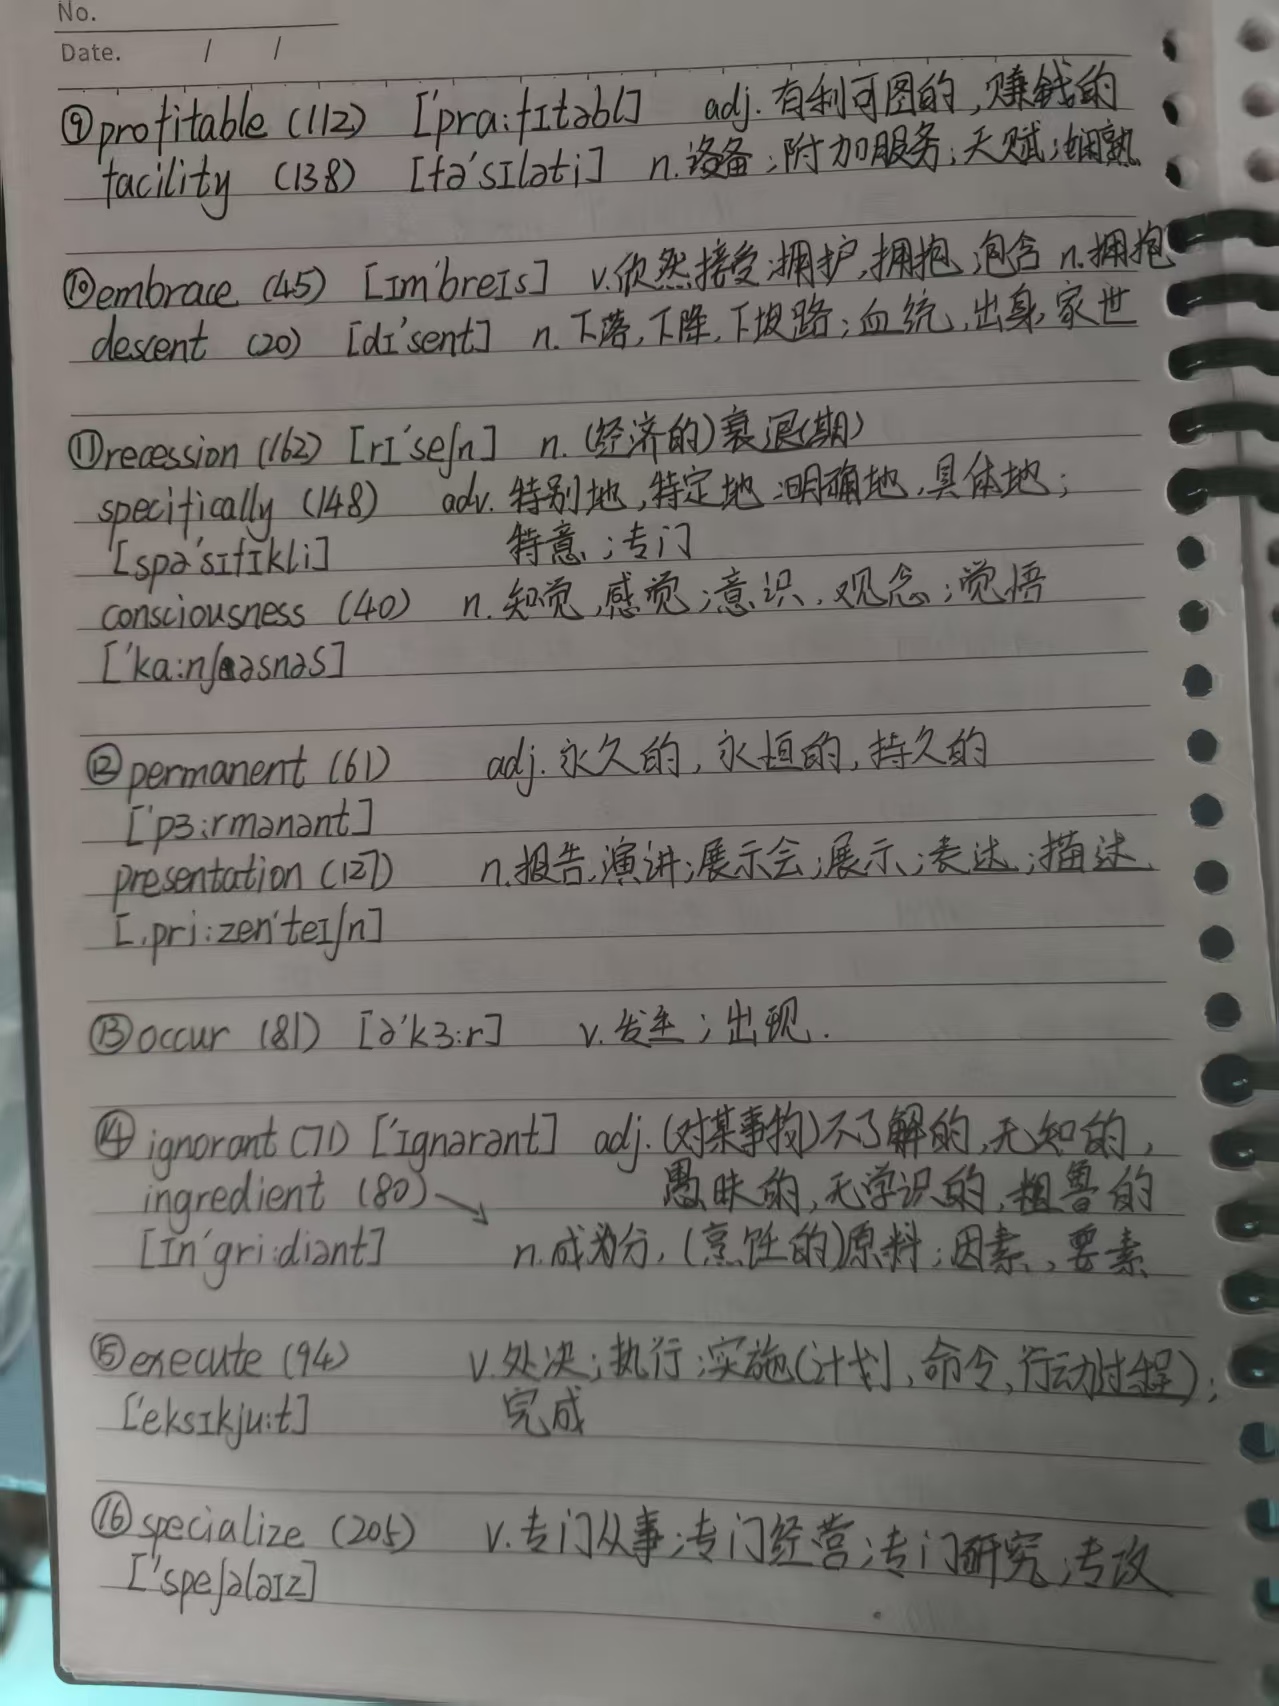 No.
Date. / /
⑨profitable (112) ['pra:fɪtəbl] adj. 有利可图的,赚钱的
facility (138) [fə'sɪləti] n.设备;附加服务;天赋;娴熟
⑩embrace (45) [ɪm'breɪs] v.欣然接受;拥护,拥抱;包含 n.拥抱
descent (20) [dɪ'sent] n.下落,下降,下坡路;血统,出身,家世
⑪recession (162) [rɪ'seʃn] n. (经济的)衰退(期)
specifically (148) adv. 特别地,特定地;明确地,具体地;
[spə'sɪfɪkli] 特意;专门
consciousness (40) n.知觉,感觉;意识,观念;觉悟
['ka:nʃəsnəs]
⑫permanent (61) adj.永久的,永恒的,持久的
['pɜ:rmənənt]
presentation (127) n.报告,演讲;展示会;展示;表达;描述
[.pri:zen'teɪʃn]
⑬occur (81) [ə'kɜ:r] v.发生;出现.
⑭ignorant (71) ['ɪgnərənt] adj.(对某事物)不了解的,无知的,
ingredient (80) 愚昧的,无学识的,粗鲁的
[ɪn'gri:diənt] n.成为分,(烹饪的)原料;因素,要素
⑮execute (94) v.处决;执行;实施(计划,命令,行动过程);
['eksɪkju:t] 完成
⑯specialize (205) v.专门从事;专门经营;专门研究;专攻
['speʃəlaɪz]